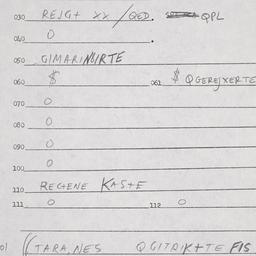 030 REJGT XX / QED. QPL
040 O .
050 GIMARINBIRTE
060 $ 061 $ QGEREJXERTE
070 O
080 O
090 O
100 O
110 REGENE KASTE
111 O 112 O
01 (TARA, NES QGITRIKTTE FIS